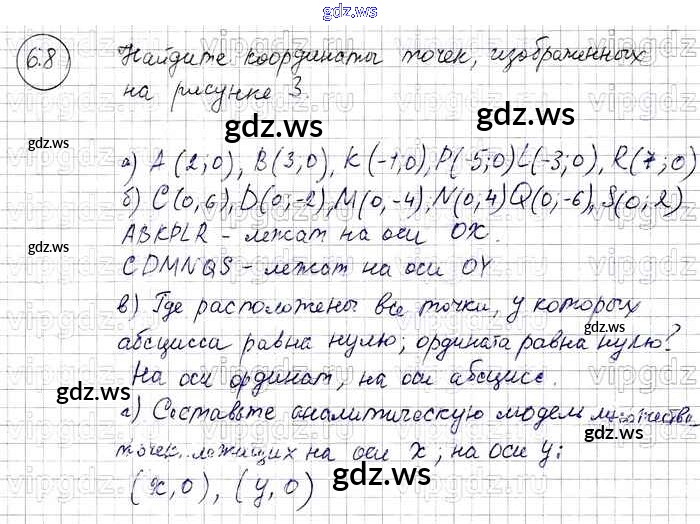 gdz.ws
6.8
Найдите координаты точек, изображенных
на рисунке 3.
gdz.ws
а) A (2;0), B(3,0), K(-1;0), P(-5;0) L(-3;0), R(7;0)
gdz.ws
б) C(0,6), D(0,-2), M(0,-4), N(0,4) Q(0,-6), S(0,2)
ABKPLR - лежат на оси OX.
gdz.ws
gdz.ws
CDMNQS - лежат на оси OY
в) Где расположены все точки, у которых
gdz.ws
абсцисса равна нулю; ордината равна нулю?
На оси ординат, на оси абсцисс.
gdz.ws
gdz.ws
г) Составьте аналитическую модель множества
точек, лежащих на оси x; на оси y:
gdz.ws
(x,0), (y,0)